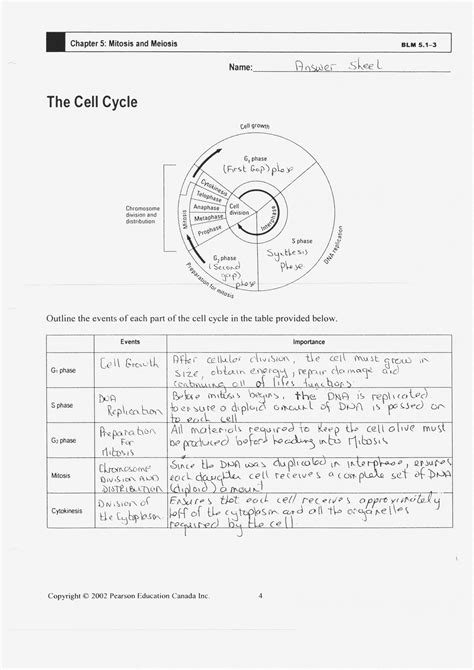 Chapter 5: Mitosis and Meiosis
BLM 5.1–3
Name: Answer Sheet
The Cell Cycle
Cell growth
G₁ phase
(First Gap) phase
Cytokinesis
Telophase
Anaphase
Metaphase
Prophase
Mitosis
Cell
division
Interphase
Chromosome
division and
distribution
S phase
Synthesis
Phase
DNA replication
G₂ phase
(Second
gap)
phase
Preparation for mitosis
Outline the events of each part of the cell cycle in the table provided below.
Events
Importance
G₁ phase
Cell Growth
After cellular division, the cell must grow in
size, obtain energy, repair damage and
continuing all of lifes functions
S phase
DNA
Replication
Before mitosis begins, the DNA is replicated
to ensure a diploid amount of DNA is passed on
to each cell
G₂ phase
Preparation
For
Mitosis
All materials required to keep the cell alive must
be produced before heading into Mitosis
Mitosis
Chromosome
DIVISION AND
DISTRIBUTION
Since the DNA was duplicated in interphase, ensures
each daughter cell receives a complete set of DNA
(diploid) amount
Cytokinesis
Division of
the Cytoplasm
Ensures that each cell receives approximately
1/2 of the cytoplasm and all the organelles
required by the cell.
Copyright © 2002 Pearson Education Canada Inc.
4